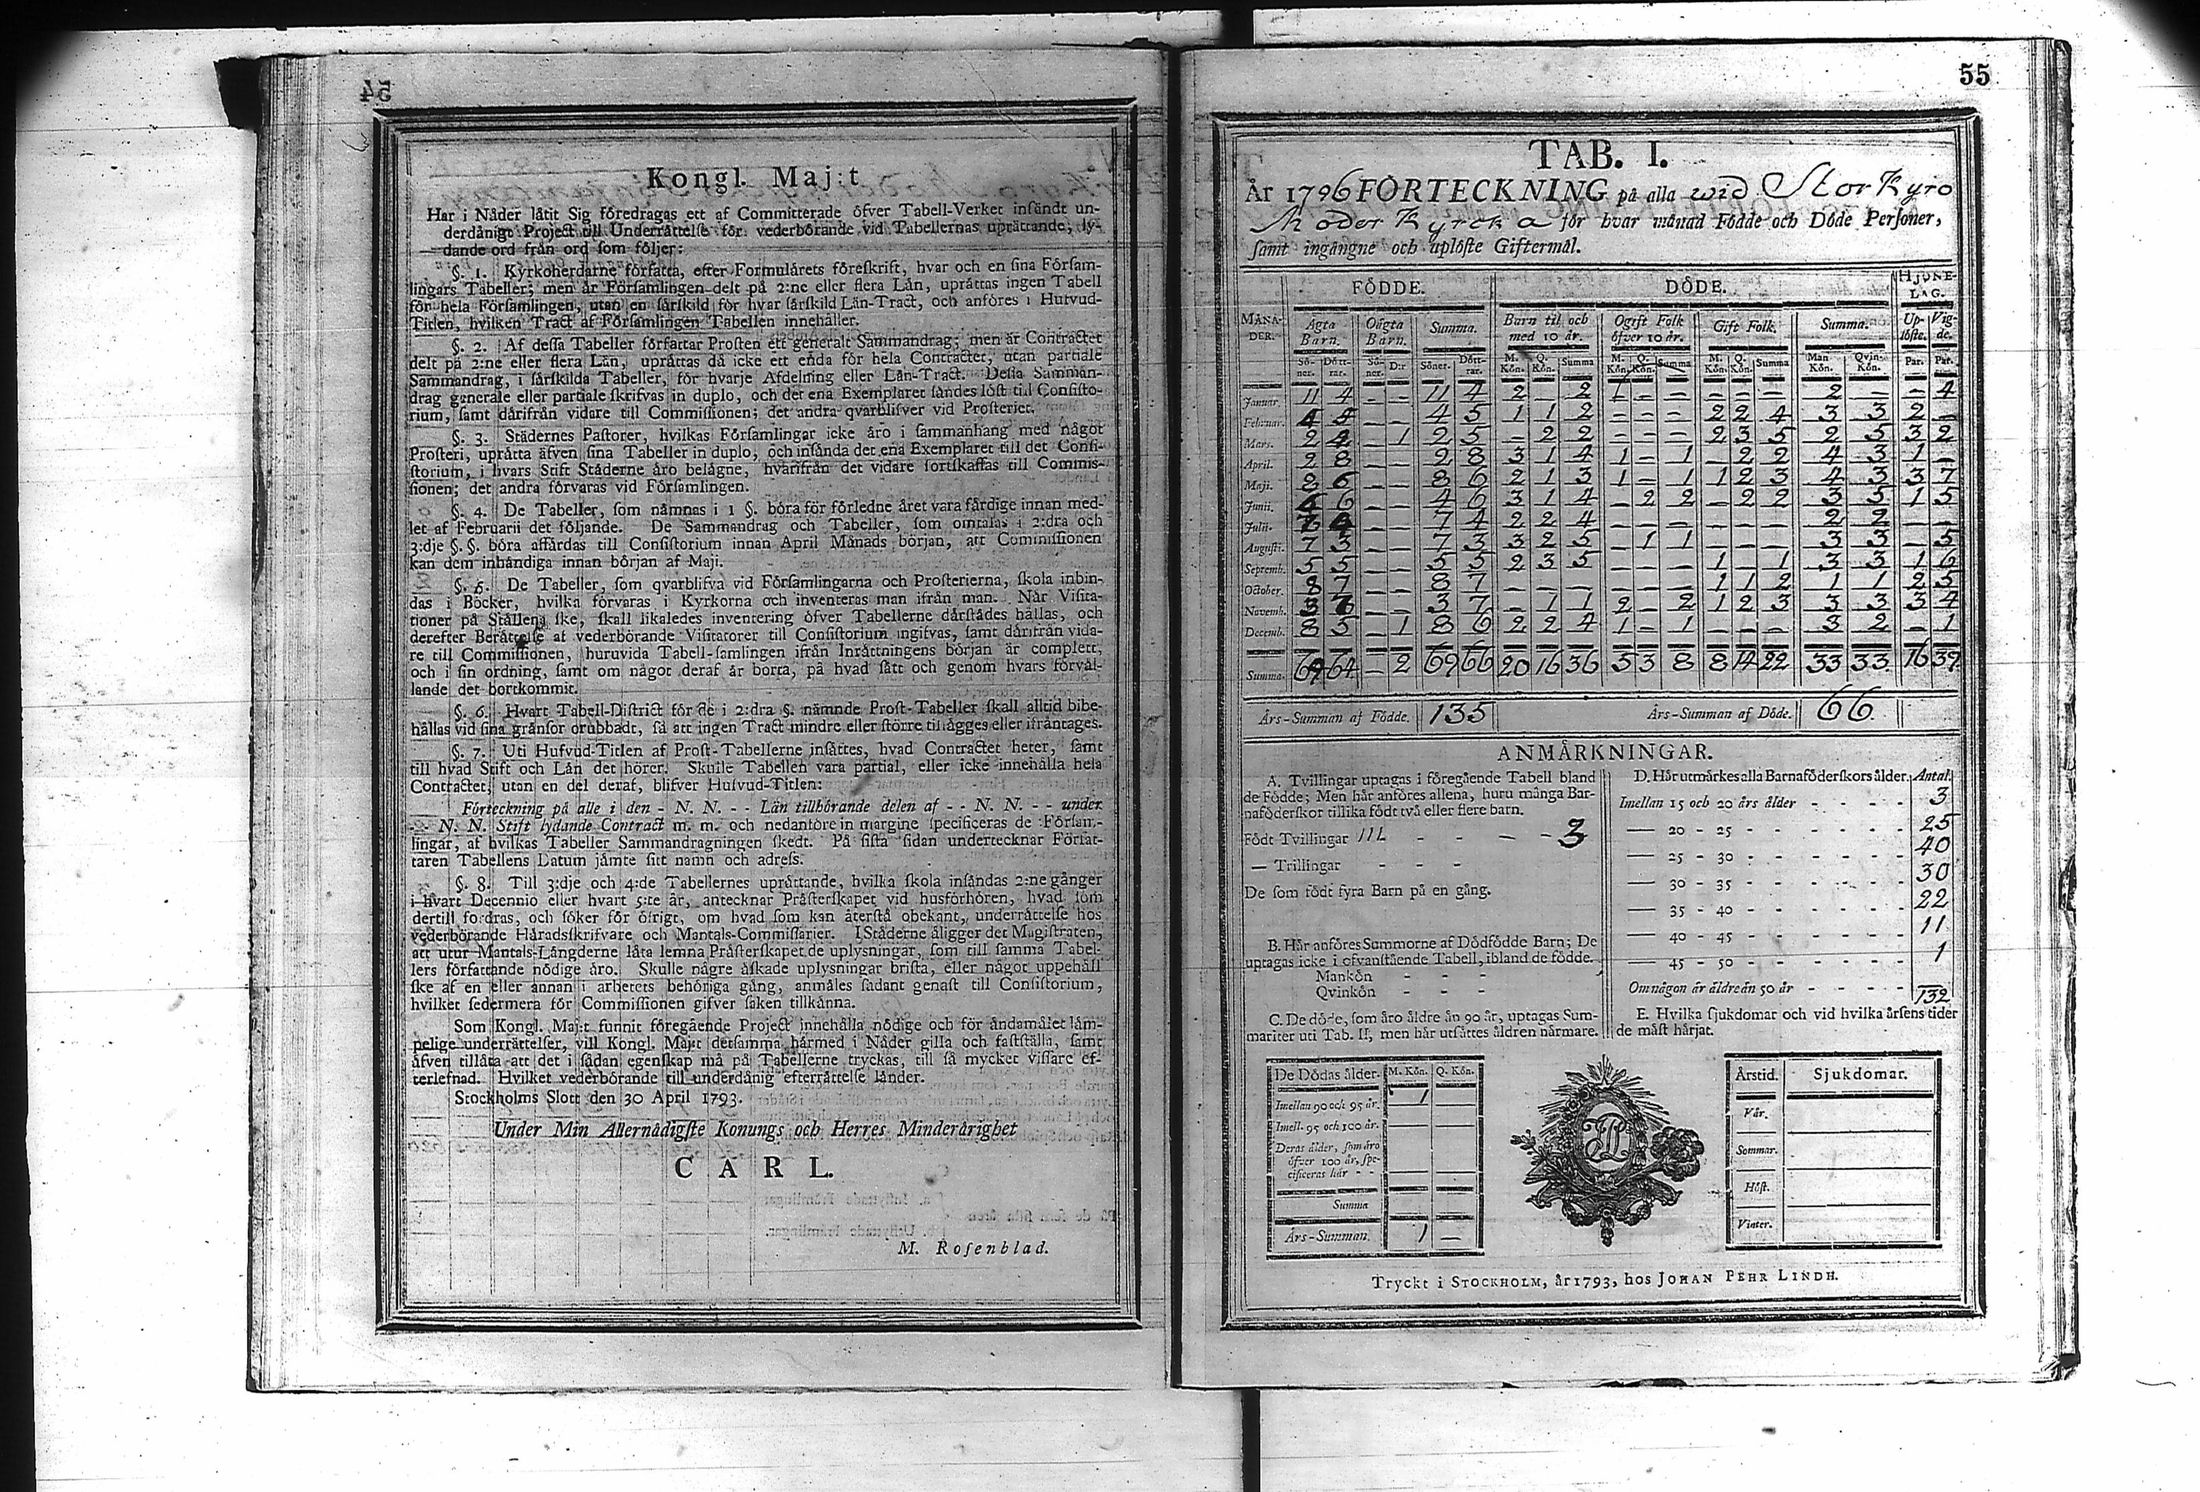 54
Kongl. Maj:t
Har i Nåder låtit Sig föredragas ett af Committerade öfver Tabell-Verket insändt un-
derdånigt Project till Underrättelse för vederbörande vid Tabellernas uprättande, ly-
dande ord från ord som följer:
§. 1. Kyrkoherdarne författa, efter Formulärets föreskrift, hvar och en sina Försam-
lingars Tabeller; men är Församlingen delt på 2:ne eller flera Län, uprättas ingen Tabell
för hela Församlingen, utan en särskild för hvar särskild Län-Tract, och anföres i Hufvud-
Titlen, hvilken Tract af Församlingen Tabellen innehåller.
§. 2. Af dessa Tabeller författar Prosten ett generalt Sammandrag; men är Contractet
delt på 2:ne eller flera Län, uprättas då icke ett enda för hela Contractet, utan partiale
Sammandrag, i särskilda Tabeller, för hvarje Afdelning eller Län-Tract. Dessa Samman-
drag generale eller partiale skrifvas in duplo, och det ena Exemplaret sändes löst till Consisto-
rium, samt därifrån vidare till Commissionen; det andra qvarblifver vid Prosteriet.
§. 3. Städernes Pastorer, hvilkas Församlingar icke äro i sammanhang med något
Prosteri, uprätta äfven sina Tabeller in duplo, och insända det ena Exemplaret till det Consi-
storium, i hvars Stift Städerne äro belägne, hvarifrån det vidare fortskaffas till Commis-
sionen; det andra förvaras vid Församlingen.
§. 4. De Tabeller, som nämnas i 1 §. böra för förledne året vara färdige innan med-
let af Februarii det följande. De Sammandrag och Tabeller, som omtalas i 2:dra och
3:dje §. §. böra affärdas till Consistorium innan April Månads början, att Commissionen
kan dem inhändiga innan början af Maji.
§. 5. De Tabeller, som qvarblifva vid Församlingarna och Prosterierna, skola inbin-
das i Böcker, hvilka förvaras i Kyrkorna och inventeras man ifrån man. När Visita-
tioner på Ställena ske, skall likaledes inventering öfver Tabellerne därstädes hållas, och
derefter Berättelse af vederbörande Visitatorer till Consistorium ingifvas, samt därifrån vida-
re till Commissionen, huruvida Tabell-samlingen ifrån Inrättningens början är complett,
och i sin ordning, samt om något deraf är borta, på hvad sätt och genom hvars förvål-
lande det bortkommit.
§. 6. Hvart Tabell-District för de i 2:dra §. nämnde Prost-Tabeller skall alltid bibe-
hållas vid sina gränsor orubbadt, så att ingen Tract mindre eller större tillägges eller ifråntages.
§. 7. Uti Hufvud-Titlen af Prost-Tabellerne insättes, hvad Contractet heter, samt
till hvad Stift och Län det hörer. Skulle Tabellen vara partial, eller icke innehålla hela
Contractet, utan en del deraf, blifver Hufvud-Titlen:
Förteckning på alle i den - N. N. - - Län tillhörande delen af - - N. N. - - under
- - N. N. Stift lydande Contract m. m. och nedanföre in margine specificeras de Försam-
lingar, af hvilkas Tabeller Sammandragningen skedt. På sista sidan undertecknar Författ-
taren Tabellens Datum jämte sitt namn och adress.
§. 8. Till 3:dje och 4:de Tabellernes uprättande, hvilka skola insändas 2:ne gånger
i hvart Decennio eller hvart 5:te år, antecknar Prästerskapet vid husförhören, hvad som
dertill fordras, och söker för öfrigt, om hvad som kan återstå obekant, underrättelse hos
vederbörande Häradsskrifvare och Mantals-Commissarier. I Städerne åligger det Magistraten,
att utur Mantals-Längderne låta lemna Prästerskapet de uplysningar, som till samma Tabel-
lers författande nödige äro. Skulle någre äskade uplysningar brista, eller något uppehåll
ske af en eller annan i arbetets behöriga gång, anmäles sådant genast till Consistorium,
hvilket sedermera för Commissionen gifver saken tillkänna.
Som Kongl. Maj:t funnit föregående Project innehålla nödige och för ändamålet läm-
pelige underrättelser, vill Kongl. Maj:t detsamma härmed i Nåder gilla och fastställa, samt
äfven tillåta att det i sådan egenskap må på Tabellerne tryckas, till så mycket vissare ef-
terlefnad. Hvilket vederbörande till underdånig efterrättelse länder.
Stockholms Slott den 30 April 1793.
Under Min Allernådigste Konungs och Herres Minderårighet
CARL.
M. Rosenblad.
55
TAB. I.
År 1796 FÖRTECKNING på alla wid Stor Kyro
Moder Kyrcka för hvar månad Födde och Döde Personer,
samt ingångne och uplöste Giftermål.
MÅNA-DER. FÖDDE. DÖDE. HJONE-LAG.
Ägta Barn. Oägta Barn. Summa. Barn til och med 10 år. Ogift Folk öfver 10 år. Gift Folk. Summa. Up-löste. Vig-de.
Sö-ner. Dött-rar. Sö-ner. D:r Söner. Dött-rar. M. Kön. Q. Kön. Summa M. Kön. Q. Kön. Summa M. Kön. Q. Kön. Summa Man Kön. Qvin-Kön. Par. Par.
Januar. 11 4 — — 11 4 2 — 2 1 — — — — — 2 — — 4
Februar. 4 5 — — 4 5 1 1 2 — — — 2 2 4 3 3 2 —
Mars. 2 4 — 1 2 5 — 2 2 — — — 2 3 5 2 5 3 2
April. 2 8 — — 2 8 3 1 4 1 — 1 — 2 2 4 3 1 —
Maji. 8 6 — — 8 6 2 1 3 1 — 1 1 2 3 4 3 3 7
Junii. 4 6 — — 4 6 3 1 4 — 2 2 — 2 2 3 5 1 5
Julii. 7 4 — — 7 4 2 2 4 — — — — — — 2 2 — —
Augusti. 7 3 — — 7 3 3 2 5 — 1 1 — — — 3 3 — 5
Septemb. 5 5 — — 5 5 2 3 5 — — — 1 — 1 3 3 1 6
October. 8 7 — — 8 7 — — — — — — 1 1 2 1 1 2 5
Novemb. 3 7 — — 3 7 — 1 1 2 — 2 1 2 3 3 3 3 4
Decemb. 8 5 — 1 8 6 2 2 4 1 — 1 — — — 3 2 — 1
Summa. 69 64 — 2 69 66 20 16 36 5 3 8 8 14 22 33 33 16 39
Års-Summan af Födde. 135 Års-Summan af Döde. 66
ANMÄRKNINGAR.
A. Tvillingar uptagas i föregående Tabell bland
de Födde; Men här anföres allena, huru många Bar-
naföderskor tillika födt två eller flere barn.
Födt Tvillingar - - — - 3
— Trillingar - - -
De som födt fyra Barn på en gång.
B. Här anföres Summorne af Dödfödde Barn; De
uptagas icke i ofvanstående Tabell, ibland de födde.
Mankön - - -
Qvinkön - - -
C. De döde, som äro äldre än 90 år, uptagas Sum-
mariter uti Tab. II, men här utsättes åldren närmare.
De Dödas ålder. M. Kön. Q. Kön.
Imellan 90 och 95 år. 1
Imell. 95 och 100 år.
Deras ålder, som äro
öfver 100 år, spe-
cificeras här - -
Summa
Års-Summan. 1 —
D. Här utmärkes alla Barnaföderskors ålder. Antal.
Imellan 15 och 20 års ålder - - - - 3
— 20 - 25 - - - - - - 25
— 25 - 30 - - - - - - 40
— 30 - 35 - - - - - - 30
— 35 - 40 - - - - - - 22
— 40 - 45 - - - - - - 11
— 45 - 50 - - - - - - 1
Om någon är äldre än 50 år - - - -
132
E. Hvilka sjukdomar och vid hvilka årsens tider
de mäst härjat.
Årstid. Sjukdomar.
Vår.
Sommar.
Höst.
Vinter.
Tryckt i STOCKHOLM, år 1793, hos JOHAN PEHR LINDH.